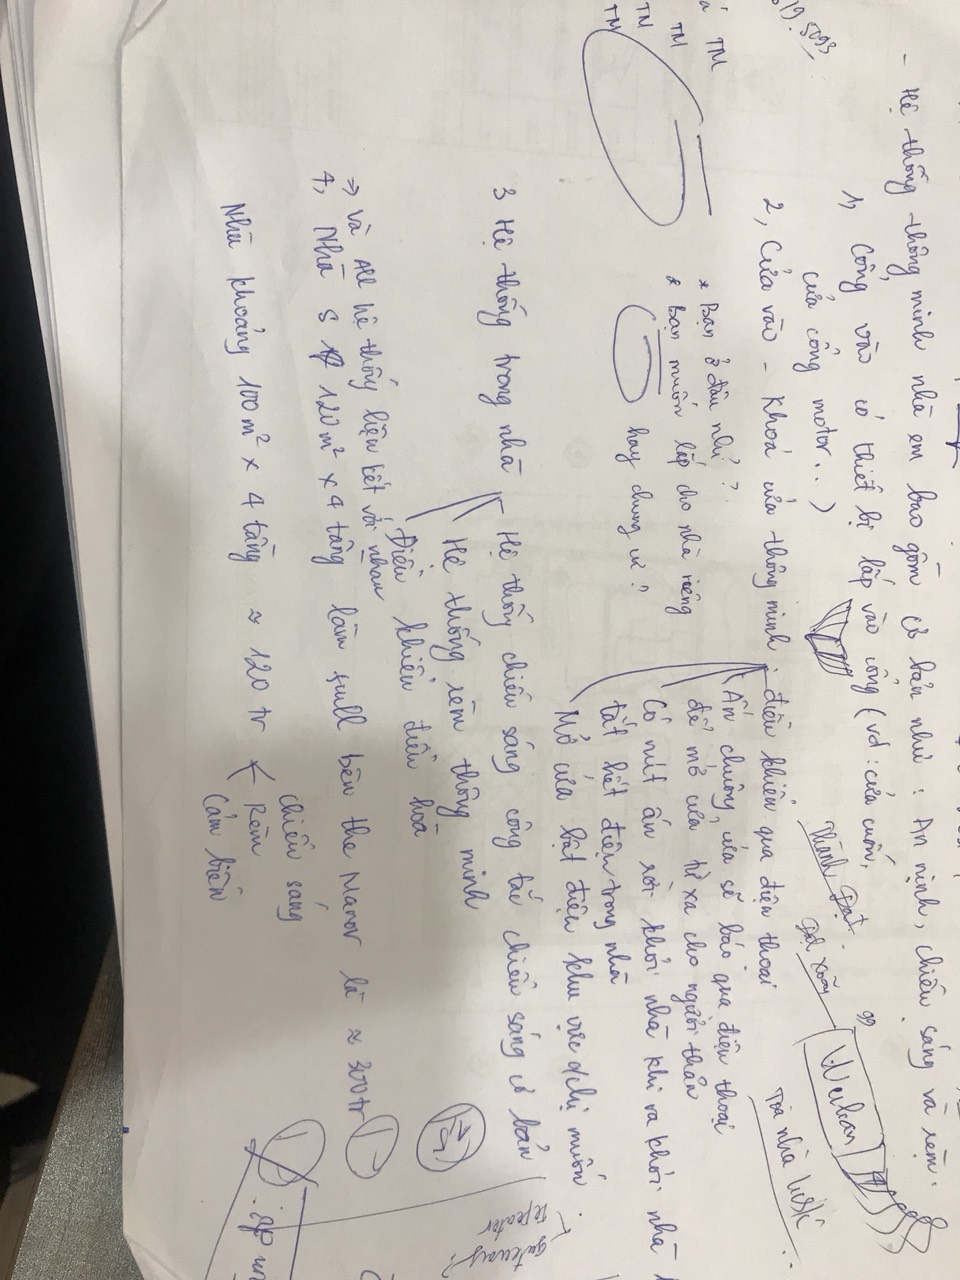 - Hệ thống thông minh nhà em bao gồm cơ bản như : An ninh, chiếu sáng và rèm.
1, Cổng vào có thiết bị lắp vào cổng (vd : cửa cuốn,
cửa cổng motor..)
2, Cửa vào - Khoá cửa thông minh : điều khiển qua điện thoại
Ấn chuông, cửa sẽ báo qua điện thoại
để mở cửa từ xa cho người thân
Có nút ấn rời khỏi nhà khi ra khỏi nhà
tắt hết điện trong nhà
Mở cửa bật điện khu vực a/chị muốn
* Bạn ở đâu nhỉ ?
* Bạn muốn lắp cho nhà riêng
hay chung cư ?
3 Hệ thống trong nhà
Hệ thống chiếu sáng công tắc chiếu sáng cơ bản
Hệ thống rèm thông minh
Điều khiển điều hoà
=> Và All hệ thống liên kết với nhau
4, Nhà S 120m² x 4 tầng làm full bên the Manor là ≈ 300tr
Nhà khoảng 100m² x 4 tầng ≈ 120 tr
chiếu sáng
Rèm
Cảm biến
TM
TM
TM
TM
Thành Đạt
Toà nhà
99
repeater
gateway